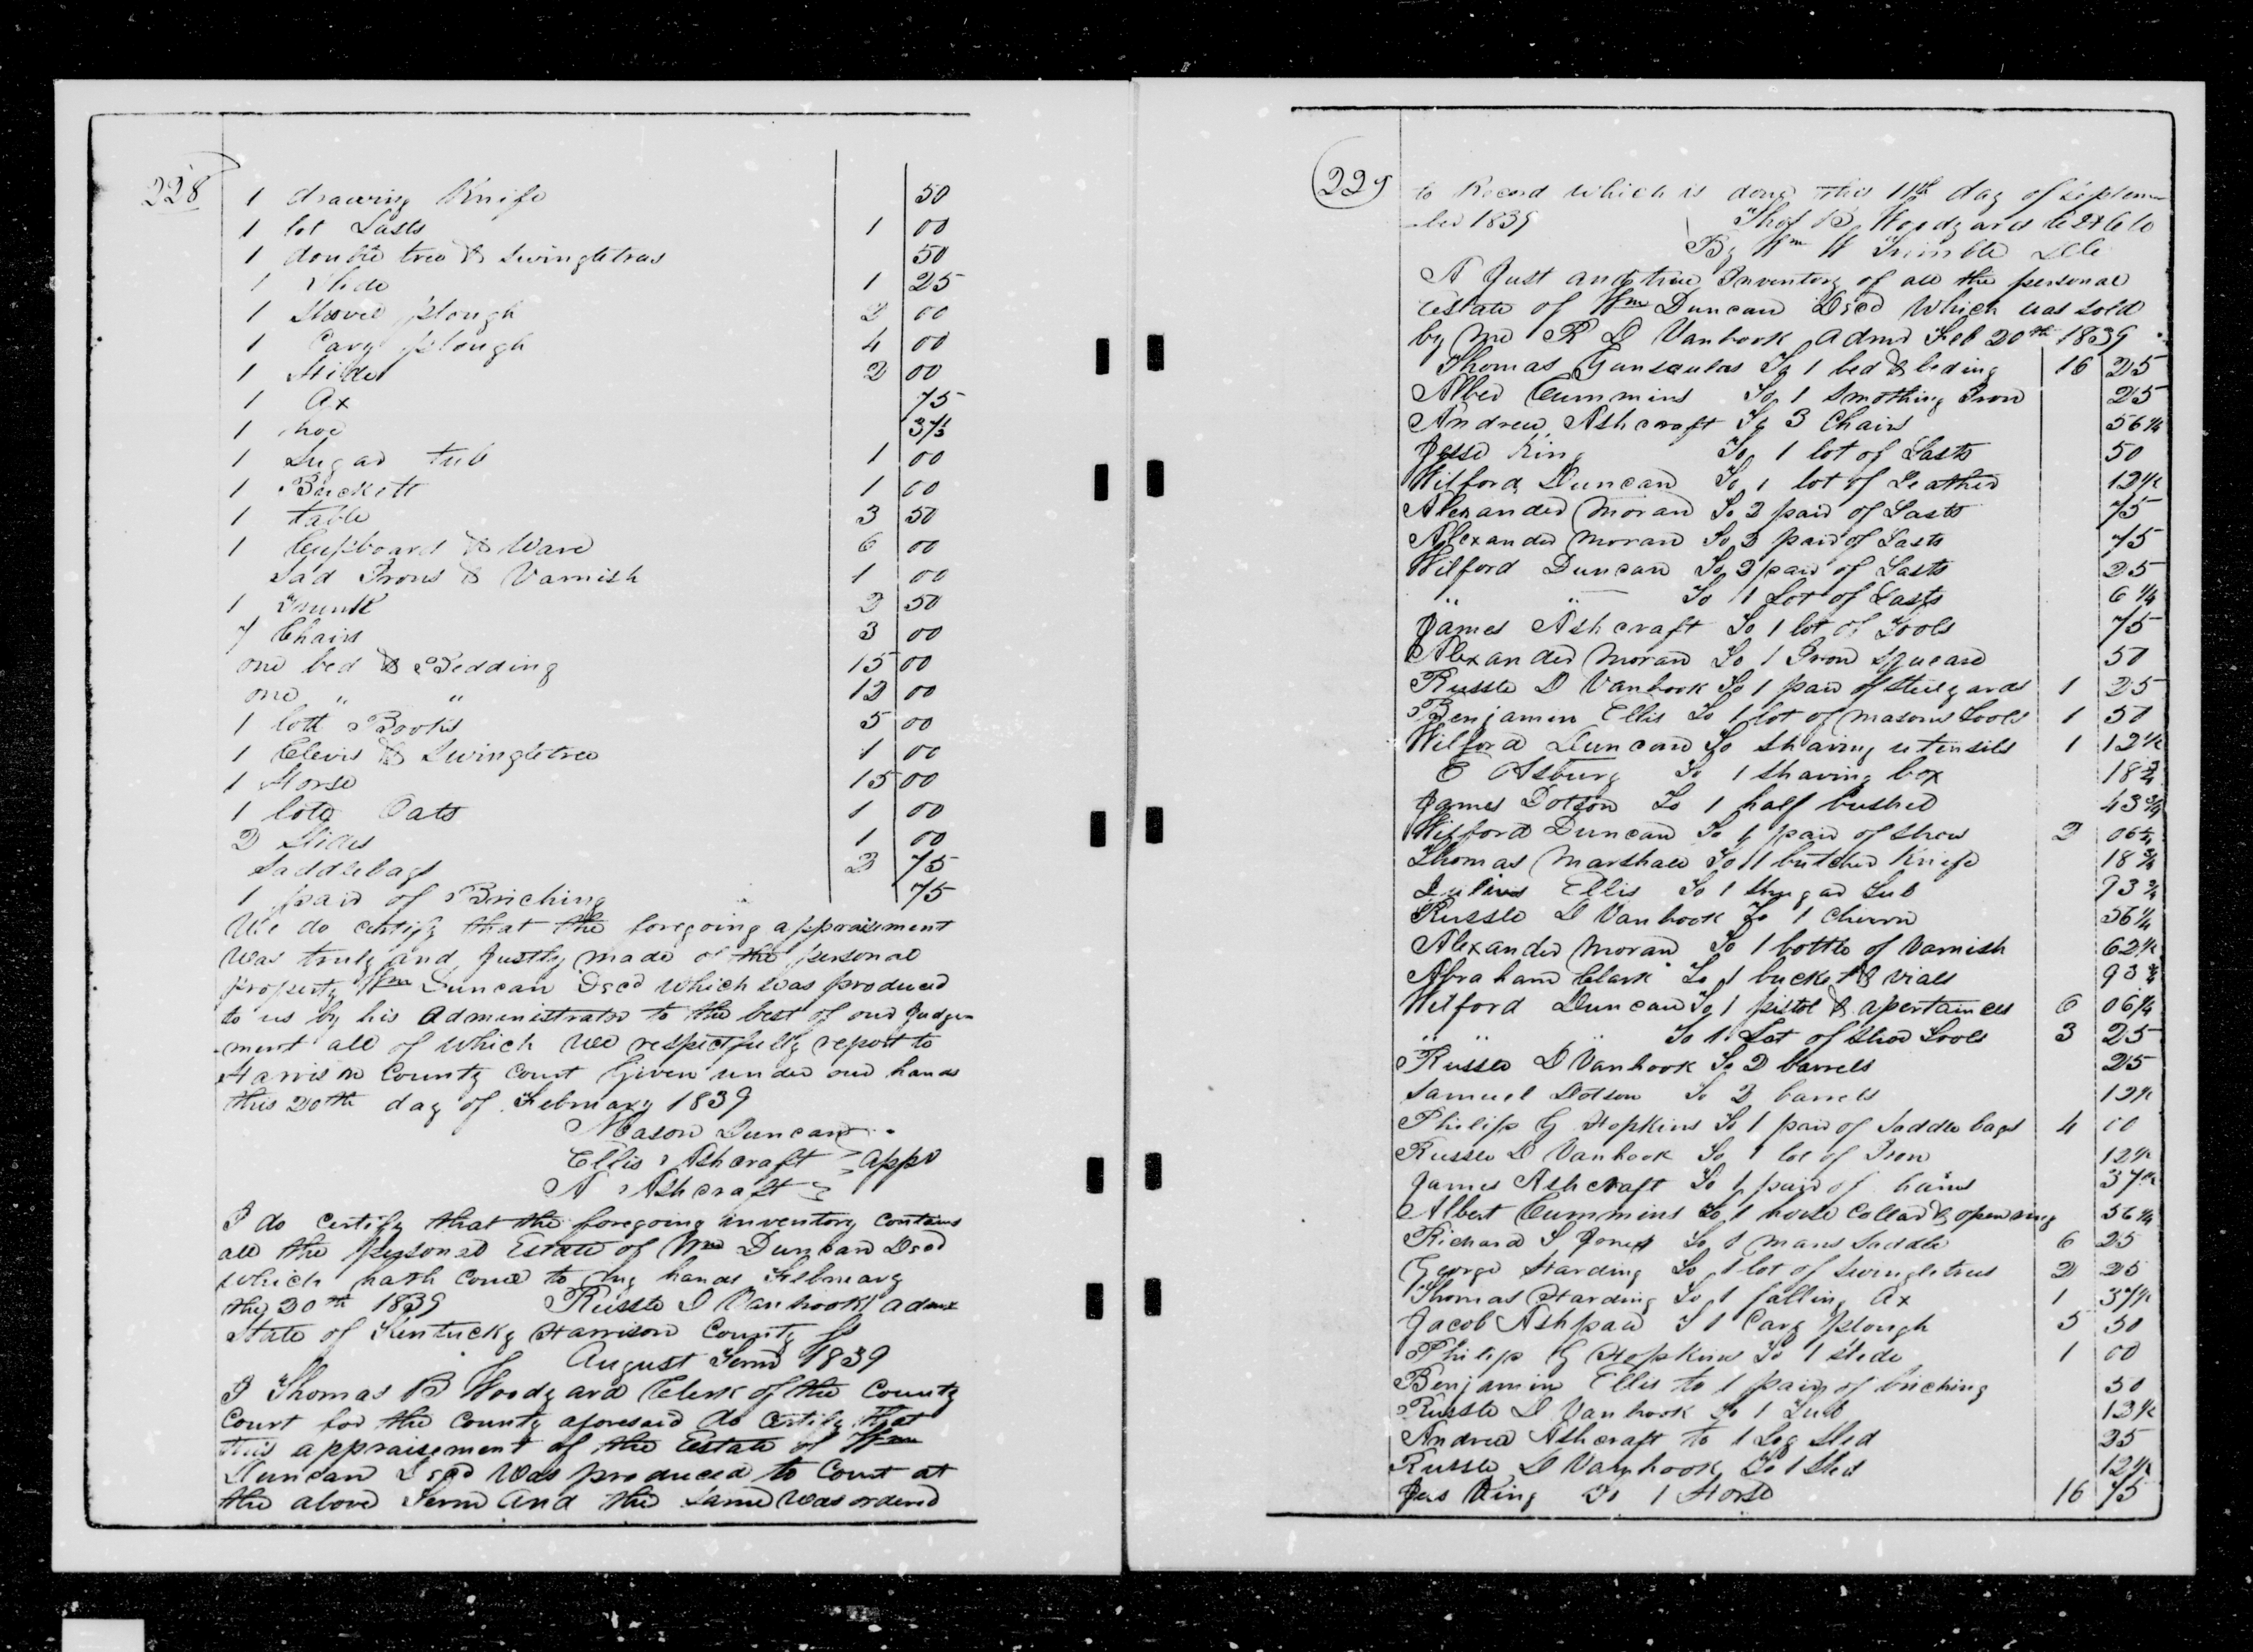 228
1 drawing Knife 50
1 lot Lasts 1 00
1 double tree & Swingletrees 50
1 Slide 1 25
1 Shovel plough 2 00
1 Cary plough 4 00
1 2 00
1 Ax 75
1 hoe 37½
1 Sugar tub 1 00
1 Buckett 1 00
1 table 3 50
1 Cupboard & Ware 6 00
Sad Irons & Varnish 1 00
1 Trunk 2 50
7 Chairs 3 00
one bed & Bedding 15 00
one " " 12 00
1 lott Books 5 00
1 Clevis & Swingletree 1 00
1 Horse 15 00
1 lott Oats 1 00
2 Slides 1 00
Saddlebags 2 75
1 pair of Briching 75
We do certify that the foregoing appraisment
was truly and Justly made of the personal
property Wm Duncan Decd which was produced
to us by his Administrator to the best of our Judge-
-ment all of which we respectfully report to
Harrison County Court Given under our hands
this 20th day of February 1839
Mason Duncan
Ellis Ashcraft } appr
A Ashcraft
I do certify that the foregoing inventory contains
all the personal Estate of Wm Duncan Decd
which hath come to my hands February
the 20th 1839 Russle D Vanhook admr
State of Kentucky Harrison County Ss
August Term 1839
I Thomas B Woodyard Clerk of the County
Court for the County aforesaid do certify that
this appraisement of the Estate of Wm
Duncan Decd was produced to Court at
the above Term and the same was ordered
229
to Record which is done this 11th day of Septem-
-ber 1839 Thos B Woodyard
By Wm W Trimble
A Just and true Inventory of all the personal
Estate of Wm Duncan Decd which was sold
by me R D Vanhook Admr Feb 20th 1839
Thomas Gunsaulas To 1 bed & beding 16 25
Alber Cummins To 1 Smothing Iron 25
Andrew Ashcraft To 3 Chairs 56¼
Jesse King To 1 lot of Lasts 50
Wilford Duncan To 1 lot of Leather 12½
Alexander Moran To 2 pair of Lasts 75
Alexander Moran To 2 pair of Lasts 75
Wilford Duncan To 2 pair of Lasts 25
" " To 1 Lot of Lasts 6¼
James Ashcraft To 1 lot of Tools 75
Alexander Moran To 1 Iron Square 50
Russle D Vanhook To 1 pair of Steelyards 1 25
Benjamin Ellis To 1 lot of masons Tools 1 50
Wilford Duncan To Shaving utensils 1 12½
E Asbury To 1 Shaving box 18¾
James Dotson To 1 half bushel 43¾
Wilford Duncan To 1 pair of Shoes 2 06¼
Thomas Marshall To 1 butcher Knife 18¾
Julius Ellis To 1 Shugar Tub 93¾
Russle D Vanhook To 1 Churn 56¼
Alexander Moran To 1 bottle of Varnish 62½
Abraham Clark To 1 bucket & vials 93¾
Wilford Duncan To 1 pistol & apertainces 6 06¼
" " " To 1 Lot of Shoe Tools 3 25
Russle D Vanhook To 2 barrels 25
Samuel Dotson To 2 barrels 12½
Philip G Hopkins To 1 pair of Saddle bags 4 00
Russle D Vanhook To 1 lot of Iron 12½
James Ashcraft To 1 pair of hains 37½
Albert Cummins To 1 horse Collar & 56¼
Richard S Jones To 1 mans Saddle 6 25
George Harding To 1 lot of Swingletrees 2 25
Thomas Harding To 1 falling Ax 1 37½
Jacob Ashpaw To 1 Cary plough 5 50
Philip G Hopkins To 1 slide 1 00
Benjamin Ellis to 1 pair of briching 50
Russle D Vanhook To 1 Tub 12½
Andrew Ashcraft to 1 Log Sled 25
Russle D Vanhook To 1 Sled 12½
Jas King To 1 Horse 16 75